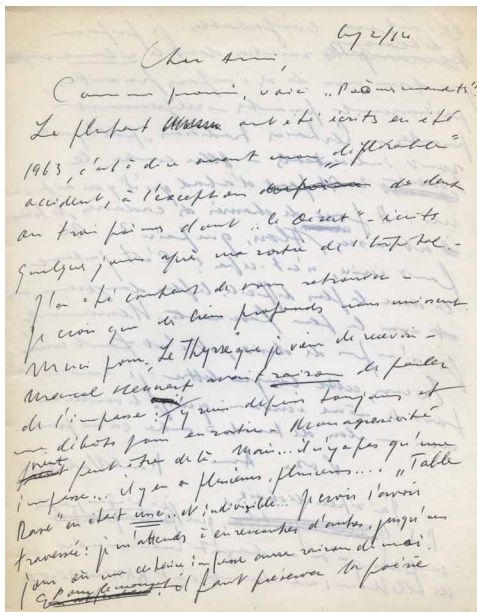 Cher Ami,
Comme promis, voici „Poèmes
La plupart ont été écrits en été
1963, c'est à dire avant mon „déplorable"
accident, à l'exception de deux
ou trois poèmes dont „le désert" – écrits
quelques jours après ma sortie de l'hôpital –
J'ai été content de vous retrouver –
je crois que des liens profonds nous unissent.
Merci pour „Le Thyrse que je viens de recevoir –
Marcel avait raison de parler
de l'impasse: j'y suis depuis toujours et
me débats pour en sortir. Mon agressivité
vient peut être de là. Mais... il n'y a pas qu'une
impasse... il y en a plusieurs, plusieurs.... „Table
Rase" en était une.. et indivisible... je crois l'avoir
traversée: je m'attends à en rencontrer d'autres, jusqu'au
jour où une dernière impasse aura raison de moi.
Pour le moment il faut préserver la poésie